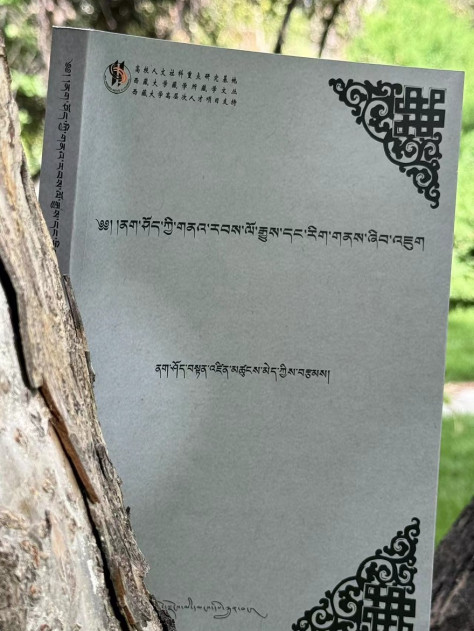 高校人文社科重点研究基地
西藏大学藏学所藏学文丛
西藏大学高层次人才项目支持
༄༅། །ནག་ཤོད་ཀྱི་གནའ་རབས་ལོ་རྒྱུས་དང་རིག་གནས་ཞིབ་འཇུག
ནག་ཤོད་བསྟན་འཛིན་མཚུངས་མེད་ཀྱིས་བརྩམས།